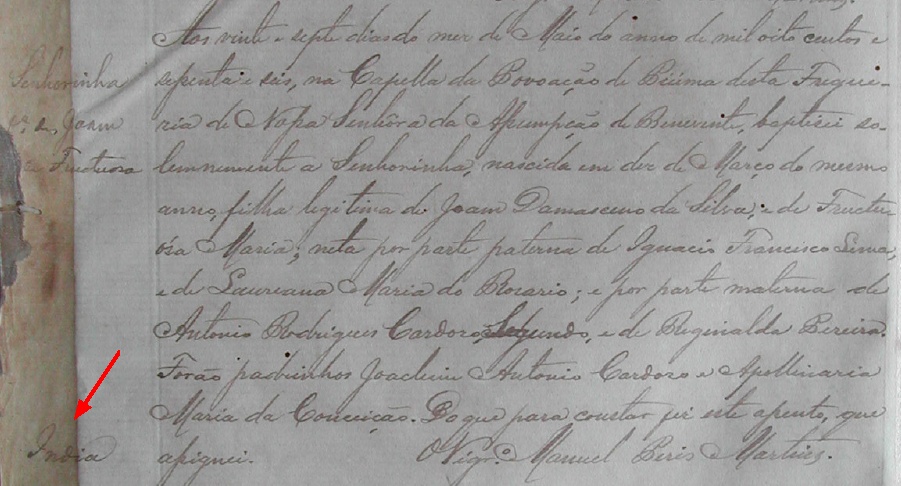 Senhorinha
f.ª d. Joam
e Fructuosa
India
Aos vinte e septe dias do mez de Maio do anno de mil oito centos e
septenta e seis, na Capella da Povoação de Piúma desta Fregue-
zia de Nossa Senhôra da Assumpção de Benevente, baptisei so-
lemnemente a Senhorinha, nascida em dez de Março do mesmo
anno, filha legitima de Joam Damasceno da Silva, e de Fructu
ósa Maria; neta por parte paterna de Ignacio Francisco Lima,
e de Laureana Maria do Rosario; e por parte materna de
Antonio Rodrigues Cardozo Segundo, e de Reginalda Pereira.
Forão padrinhos Joaclim Antonio Cardozo e Apollinaria
Maria da Conceição. Do que para constar fiz este assento, que
assignei. O Vigr.º Manuel Peris Martins.